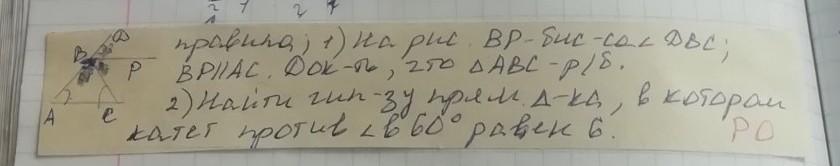 D
B
P
A
C
правила; 1) На рис. BP-бис-са ∠ DBC;
BP||AC. Док-ть, что △ABC-р/б.
2) Найти гип-зу прям. △-ка, в котором
катет против ∠ в 60° равен 6.
РО